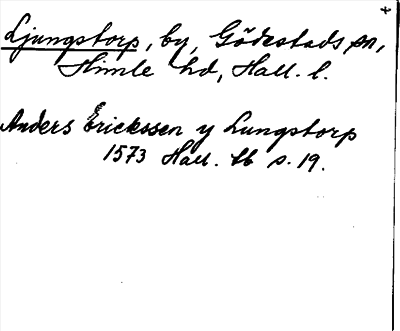 Ljungstorp, by, Gödestads sn,
Himle hd, Hall. l.
Anders Erickssen y Lungstorp
1573 Hall. tb s. 19.